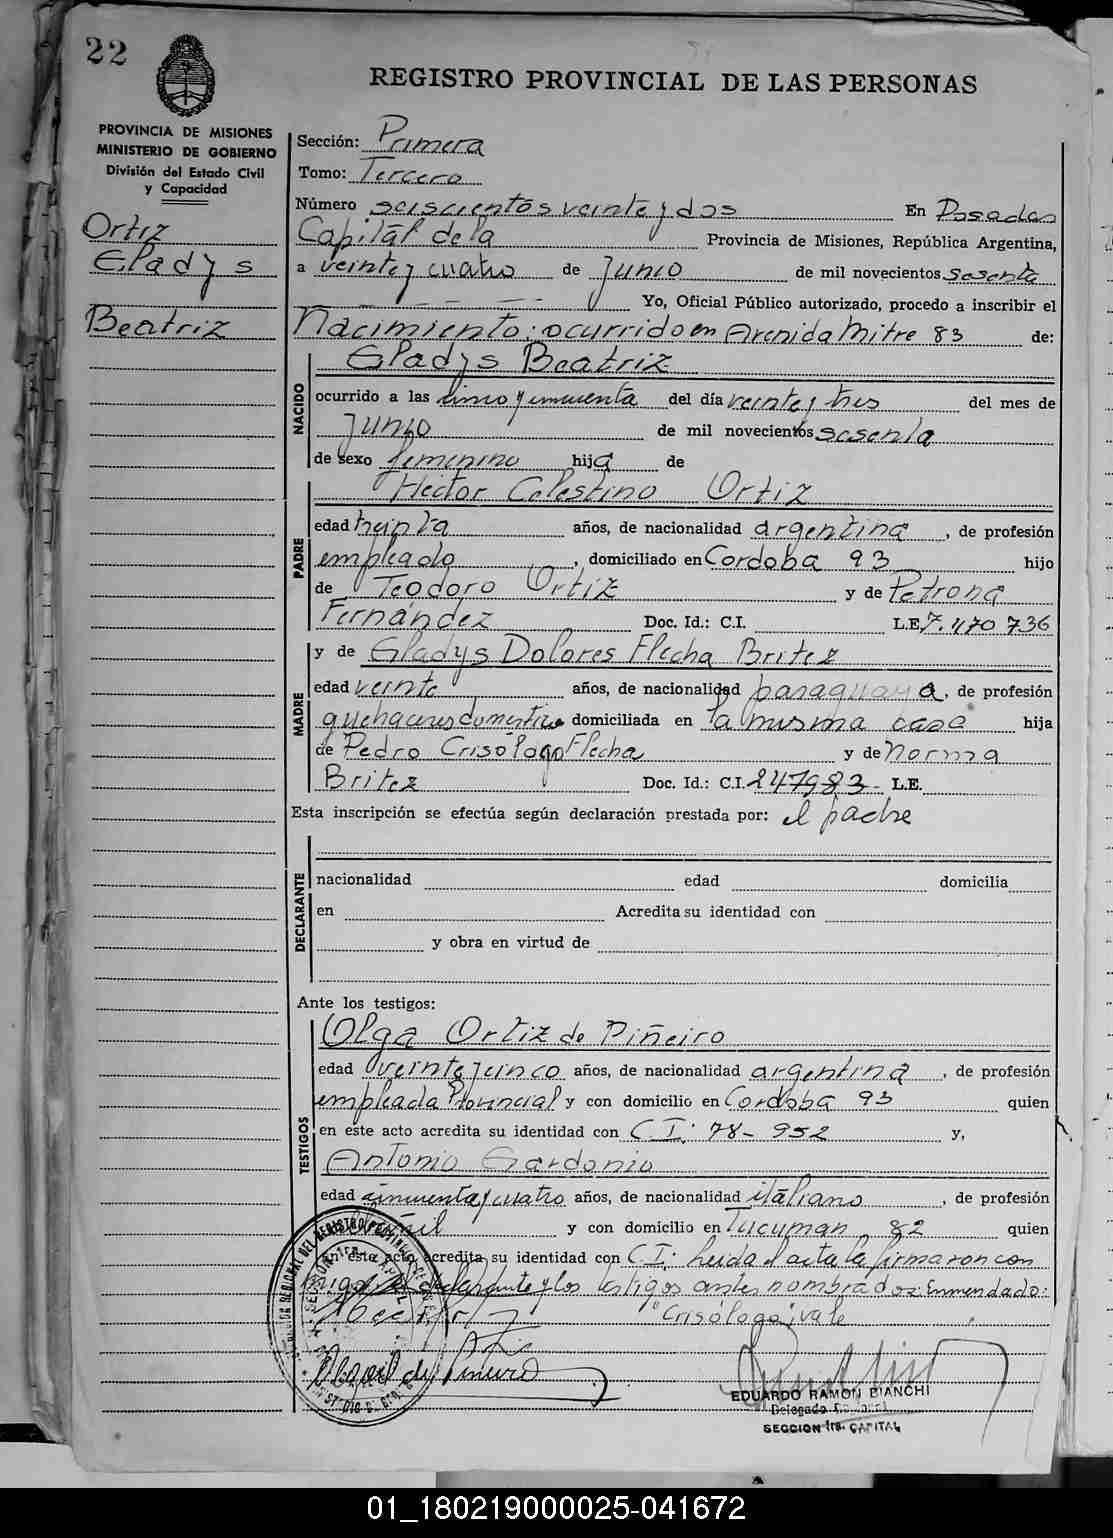 22
REGISTRO PROVINCIAL DE LAS PERSONAS
PROVINCIA DE MISIONES
MINISTERIO DE GOBIERNO
División del Estado Civil
y Capacidad
Ortiz
Gladys
Beatriz
Sección: Primera
Tomo: Tercero
Número seiscientos veinte y dos En Posadas
Capital de la Provincia de Misiones, República Argentina,
a veinte y cuatro de Junio de mil novecientos sesenta
Yo, Oficial Público autorizado, procedo a inscribir el
Nacimiento: ocurrido en Avenida Mitre 83 de:
Gladys Beatriz
NACIDO
ocurrido a las cinco y cincuenta del día veinte y tres del mes de
Junio de mil novecientos sesenta
de sexo femenino hija de
Héctor Celestino Ortiz
PADRE
edad treinta años, de nacionalidad argentina, de profesión
empleado, domiciliado en Cordoba 93 hijo
de Teodoro Ortiz y de Petrona
Fernández Doc. Id.: C.I. L.E. 7.470 736
MADRE
y de Gladys Dolores Flecha Britez
edad veinte años, de nacionalidad paraguaya, de profesión
quehaceres domésticos domiciliada en la misma casa hija
de Pedro Crisólogo Flecha y de Norma
Britez Doc. Id.: C.I. 247983 L.E.
Esta inscripción se efectúa según declaración prestada por: el padre
DECLARANTE
nacionalidad edad domicilia
en Acredita su identidad con
y obra en virtud de
Ante los testigos:
TESTIGOS
Olga Ortiz de Piñeiro
edad veinte y cinco años, de nacionalidad argentina, de profesión
empleada Provincial y con domicilio en Cordoba 93 quien
en este acto acredita su identidad con C.I. 78-952 y,
Antonio Gardonio
edad cincuenta y cuatro años, de nacionalidad italiano, de profesión
y con domicilio en Tucuman 82 quien
en este acto acredita su identidad con C.I: leida el acta la firmaron con
migo el declarante y los testigos antes nombrados: Enmendado:
"Crisólogo" vale
EDUARDO RAMON BIANCHI
Delegado
SECCION 1ra. CAPITAL
01_180219000025-041672